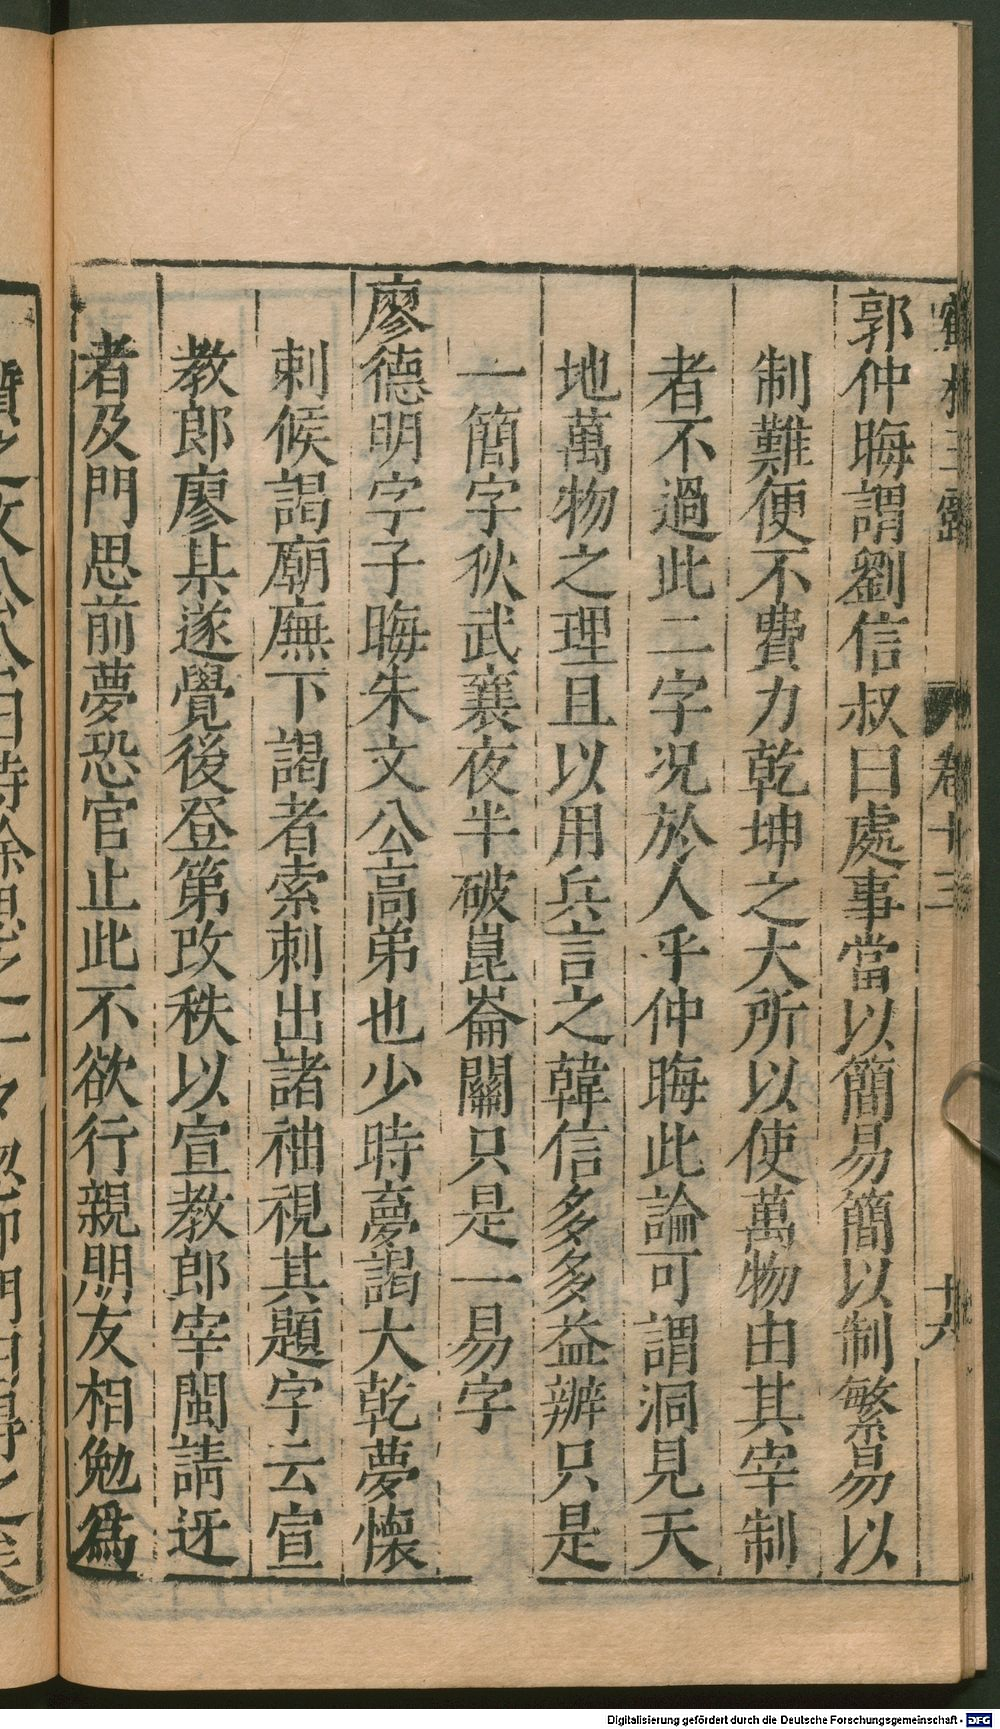 郭仲晦謂劉信叔曰處事當以簡易簡以制繁易以
制難便不費力乾坤之大所以使萬物由其宰制
者不過此二字况於人乎仲晦此論可謂洞見天
地萬物之理且以用兵言之韓信多多益辦只是
一簡字狄武襄夜半破崑崙關只是一易字
廖德明字子晦朱文公高弟也少時夢謁大乾夢懷
刺候謁廟廡下謁者索刺出諸袖視其題字云宣
教郎廖某遂覺後登第改秩以宣教郎宰閩請迓
者及門思前夢恐官止此不欲行親朋友相勉爲
卷十三
Digitalisierung gefördert durch die Deutsche Forschungsgemeinschaft - DFG